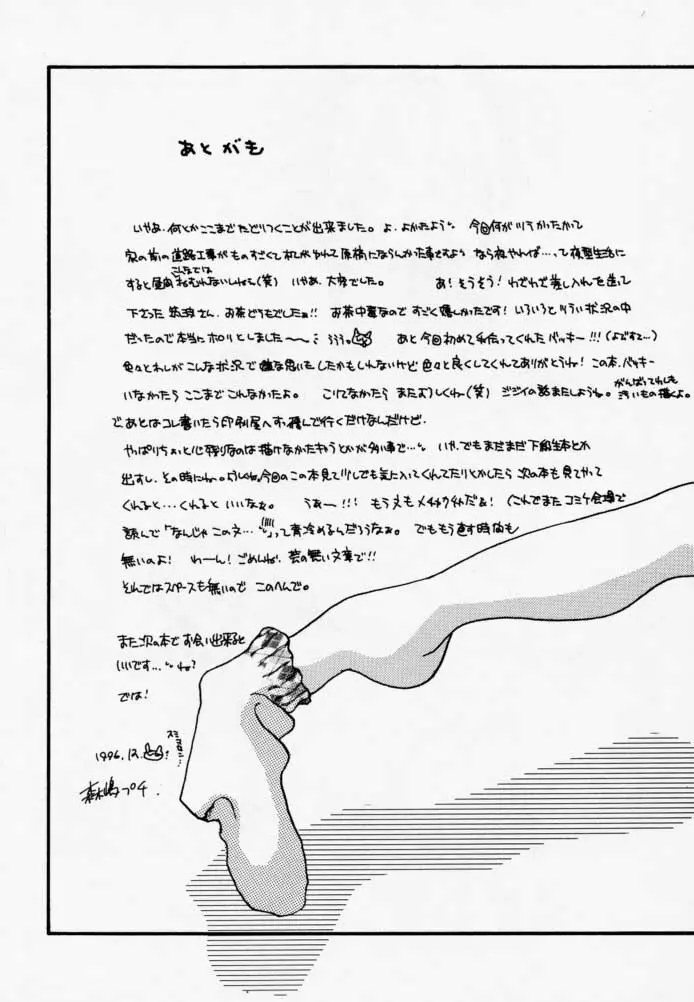 あとがき
いやぁ、何とかここまでたどりつくことが出来ました。よ、よかったよう。今回何がツラかったかって
家の前の道路工事がものすごくて 原稿にならんかった事ですよう なら夜やれば…って夜型生活に
すると昼間 こんなではねむれないしねェ(笑) いやぁ、大変でした。 あ!そうそう!わざわざ差し入れを送って
下さった さん、お茶どうもでしたぁ!! お茶中毒なのですごく嬉しかったです! いろいろとツライ状況の中
だったので本当にホロリとしました〜 あと今回初めて手伝ってくれたバッキー!!!
色々とわしがこんな状況で嫌な思いもしたかもしれないけど色々と良くしてくれてありがとうね!この本、バッキー
いなかったらここまでこれなかたよ。 こりてなかたらまたよろしくねー(笑) ジジイの話またしようね。がんばってわしも
いもの描くよ。
で、あとはコレ書いたら印刷屋へすっ飛んで行くだけなんだけど、
やっぱりちょっと心残りなのは描けなかたキャラとかが多い事で… いや、でもまだまだ下級生本とか
出すし、その時にね。 今回のこの本見て少しでも気に入ってくれてたりとかしたら次の本も見てやって
くれると…くれるといいなぁ。 うあー!!! もう文もメチャクチャだぁ! (これでまたコミケ会場で
読んで「なんじゃこの文…」って青冷めるんだろうなぁ。でももう直す時間も
無いのよ! わーん!ごめんね、芸の無い文章で!!
それではスペースも無いのでこのへんで。
また次の本でお会い出来ると
いいです…ね?
では!
1996.12.
森嶋プチ.